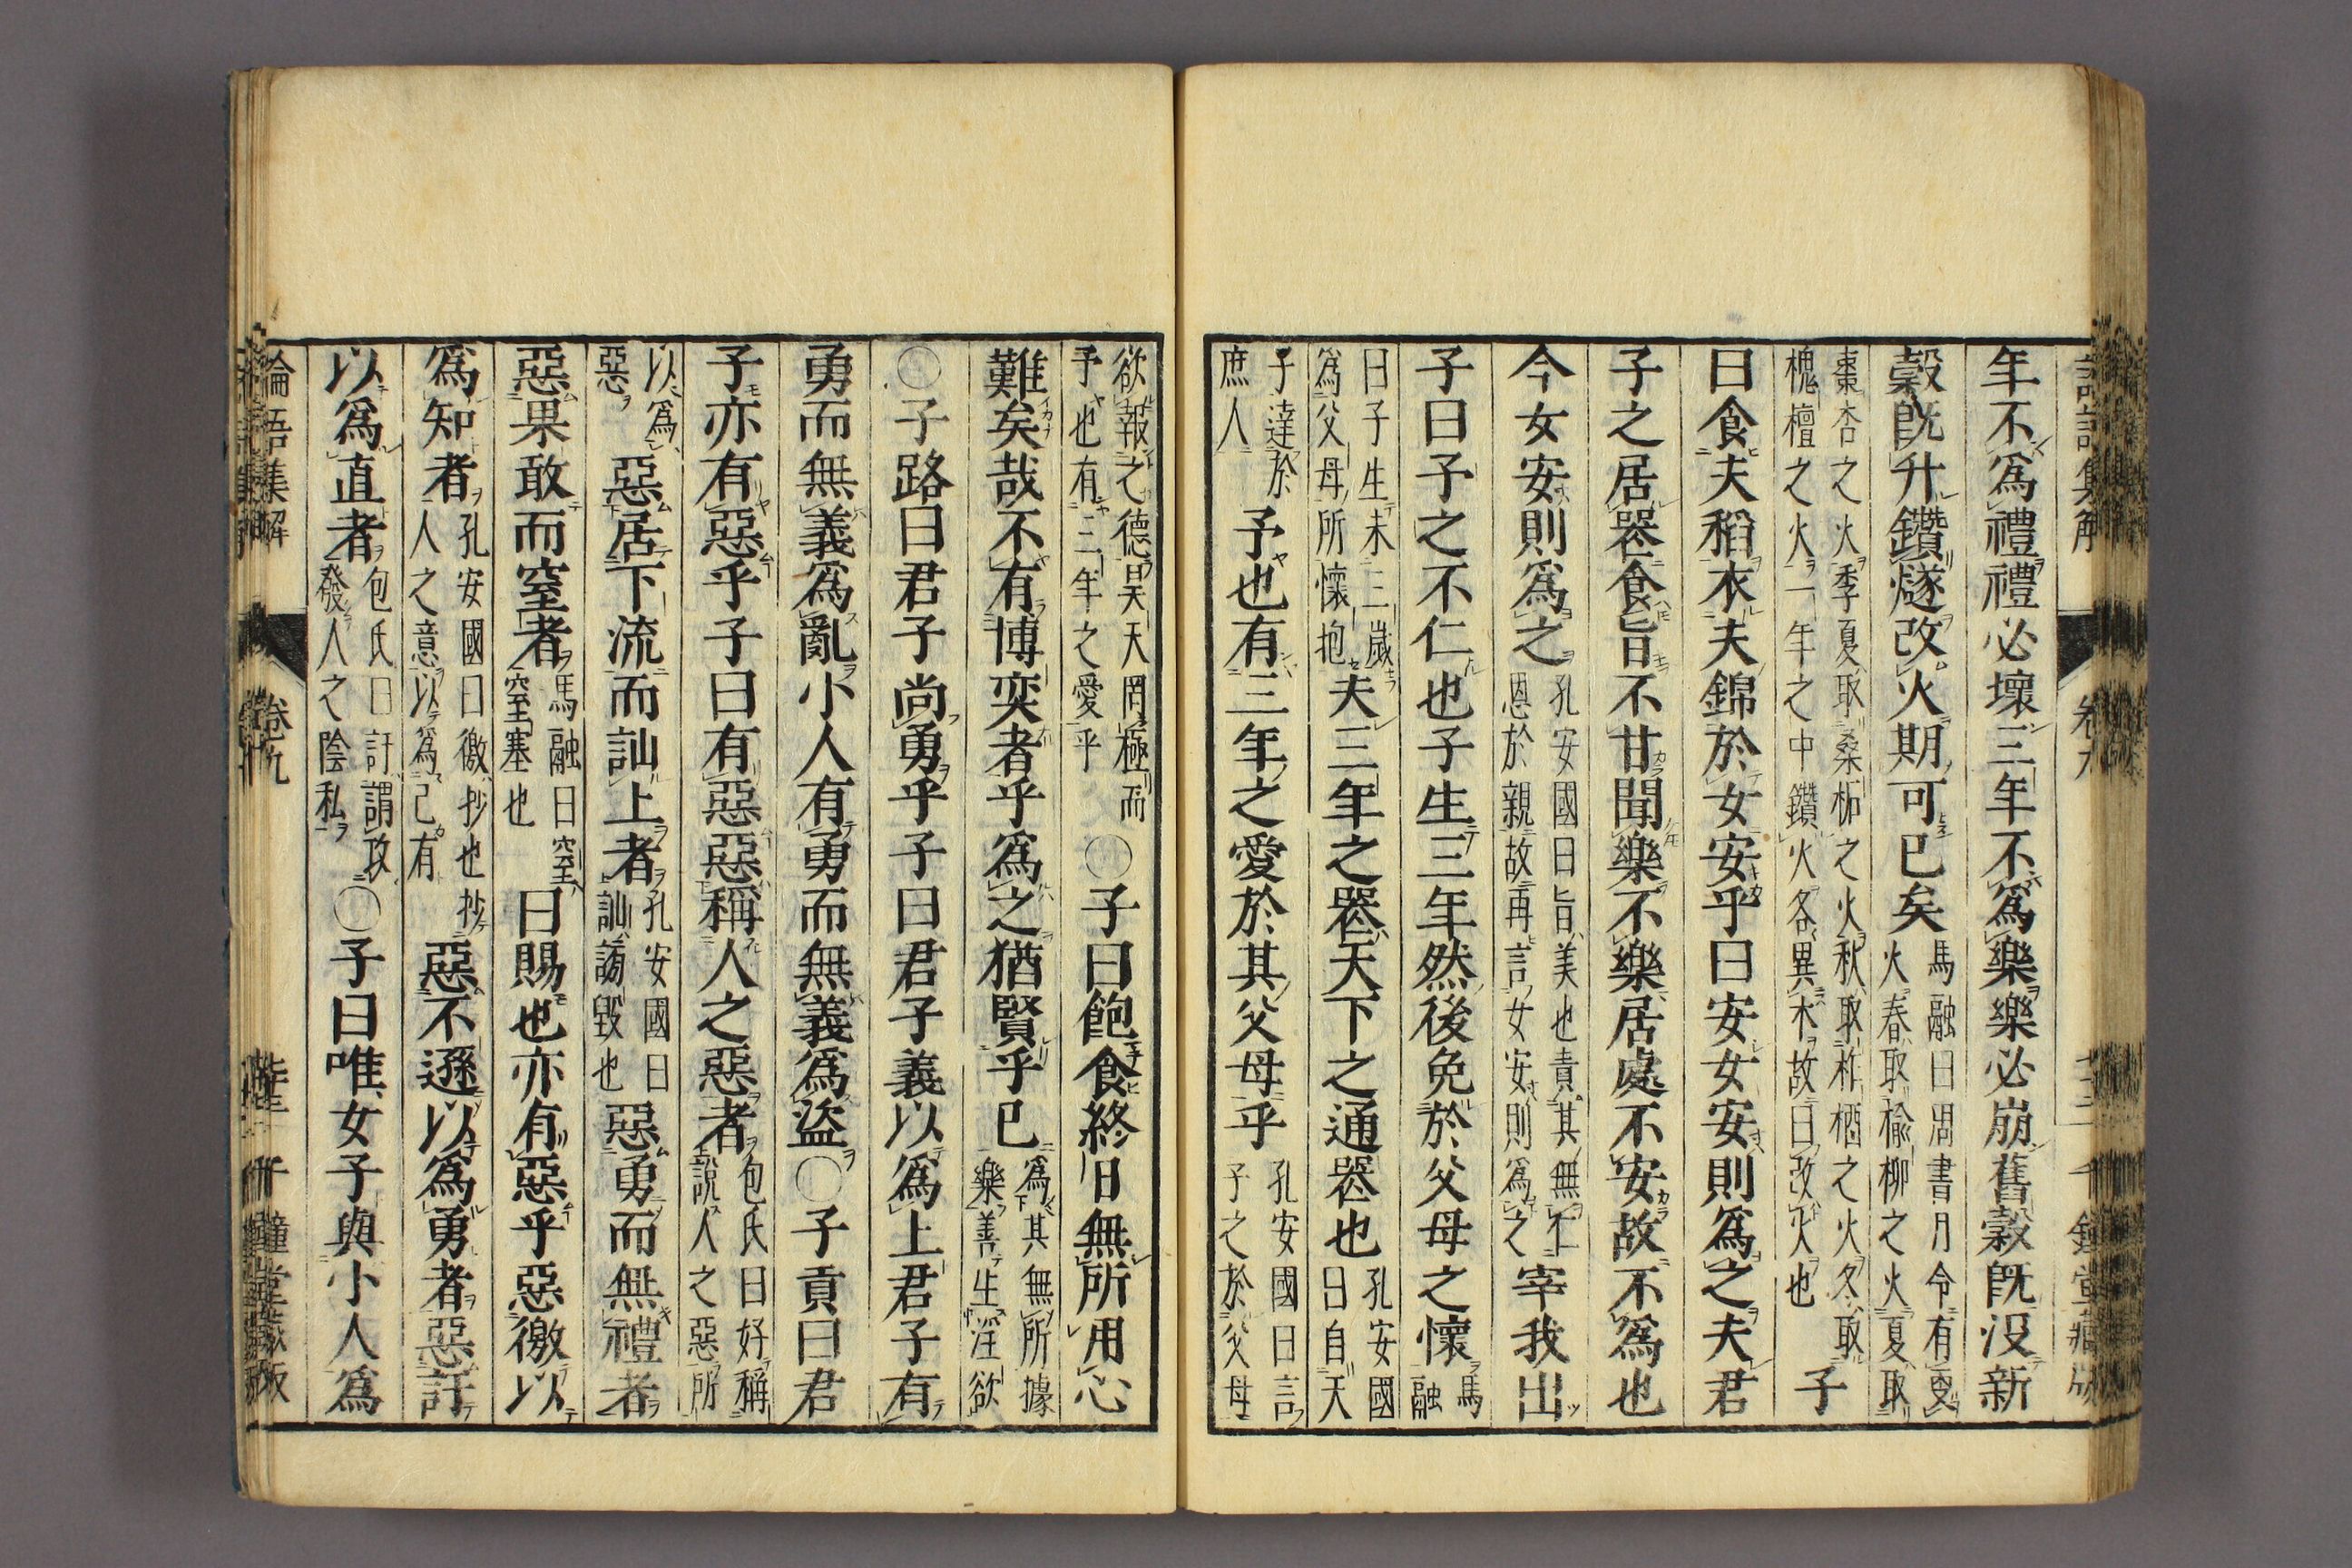 年不爲禮禮必壞三年不爲樂樂必崩舊穀既沒新
穀既升鑽燧改火期可已矣馬融曰周書月令有更火春取榆柳之火夏取
棗杏之火季夏取桑柘之火秋取柞楢之火冬取槐檀之火一年之中鑽火各異木故曰改火也子
曰食夫稻衣夫錦於女安乎曰安女安則爲之夫君
子之居喪食旨不甘聞樂不樂居處不安故不爲也
今女安則爲之孔安國曰旨美也責其無仁恩於親故再言女安則爲之宰我出
子曰予之不仁也子生三年然後免於父母之懷馬融
曰子生未三歲爲父母所懷抱夫三年之喪天下之通喪也孔安國曰自天
子達於庶人予也有三年之愛於其父母乎孔安國曰言子之於父母
欲報之德昊天罔極而予也有三年之愛乎○子曰飽食終日無所用心
難矣哉不有博奕者乎爲之猶賢乎已爲其無所據樂善生淫欲
○子路曰君子尚勇乎子曰君子義以爲上君子有
勇而無義爲亂小人有勇而無義爲盜○子貢曰君
子亦有惡乎子曰有惡惡稱人之惡者包氏曰好稱說人之惡所
以爲惡惡居下流而訕上者孔安國曰訕謗毀也惡勇而無禮者
惡果敢而窒者馬融曰窒窒塞也曰賜也亦有惡乎惡徼以
爲知者孔安國曰徼抄也抄人之意以爲己有惡不遜以爲勇者惡訐
以爲直者包氏曰訐謂攻發人之陰私○子曰唯女子與小人爲
論語集解 卷九